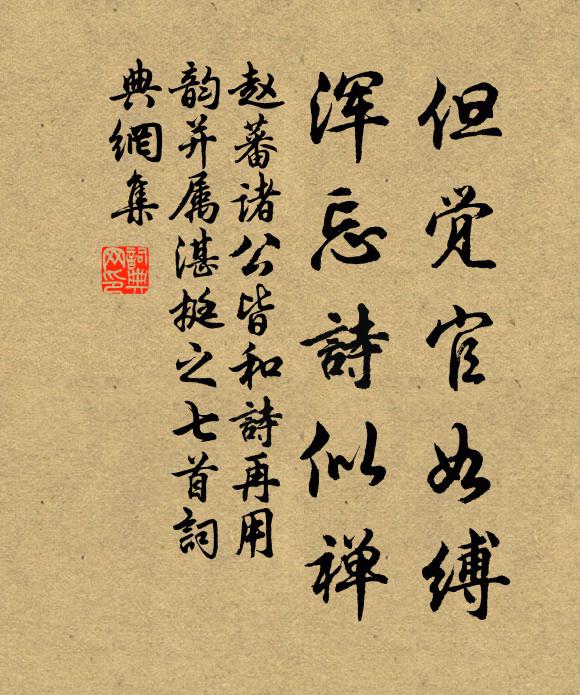 但觉官如缚
浑忘詩似禅
赵蕃诸公皆和詩再用
韵并属湛挺之七首詞
典網集
詞典网印